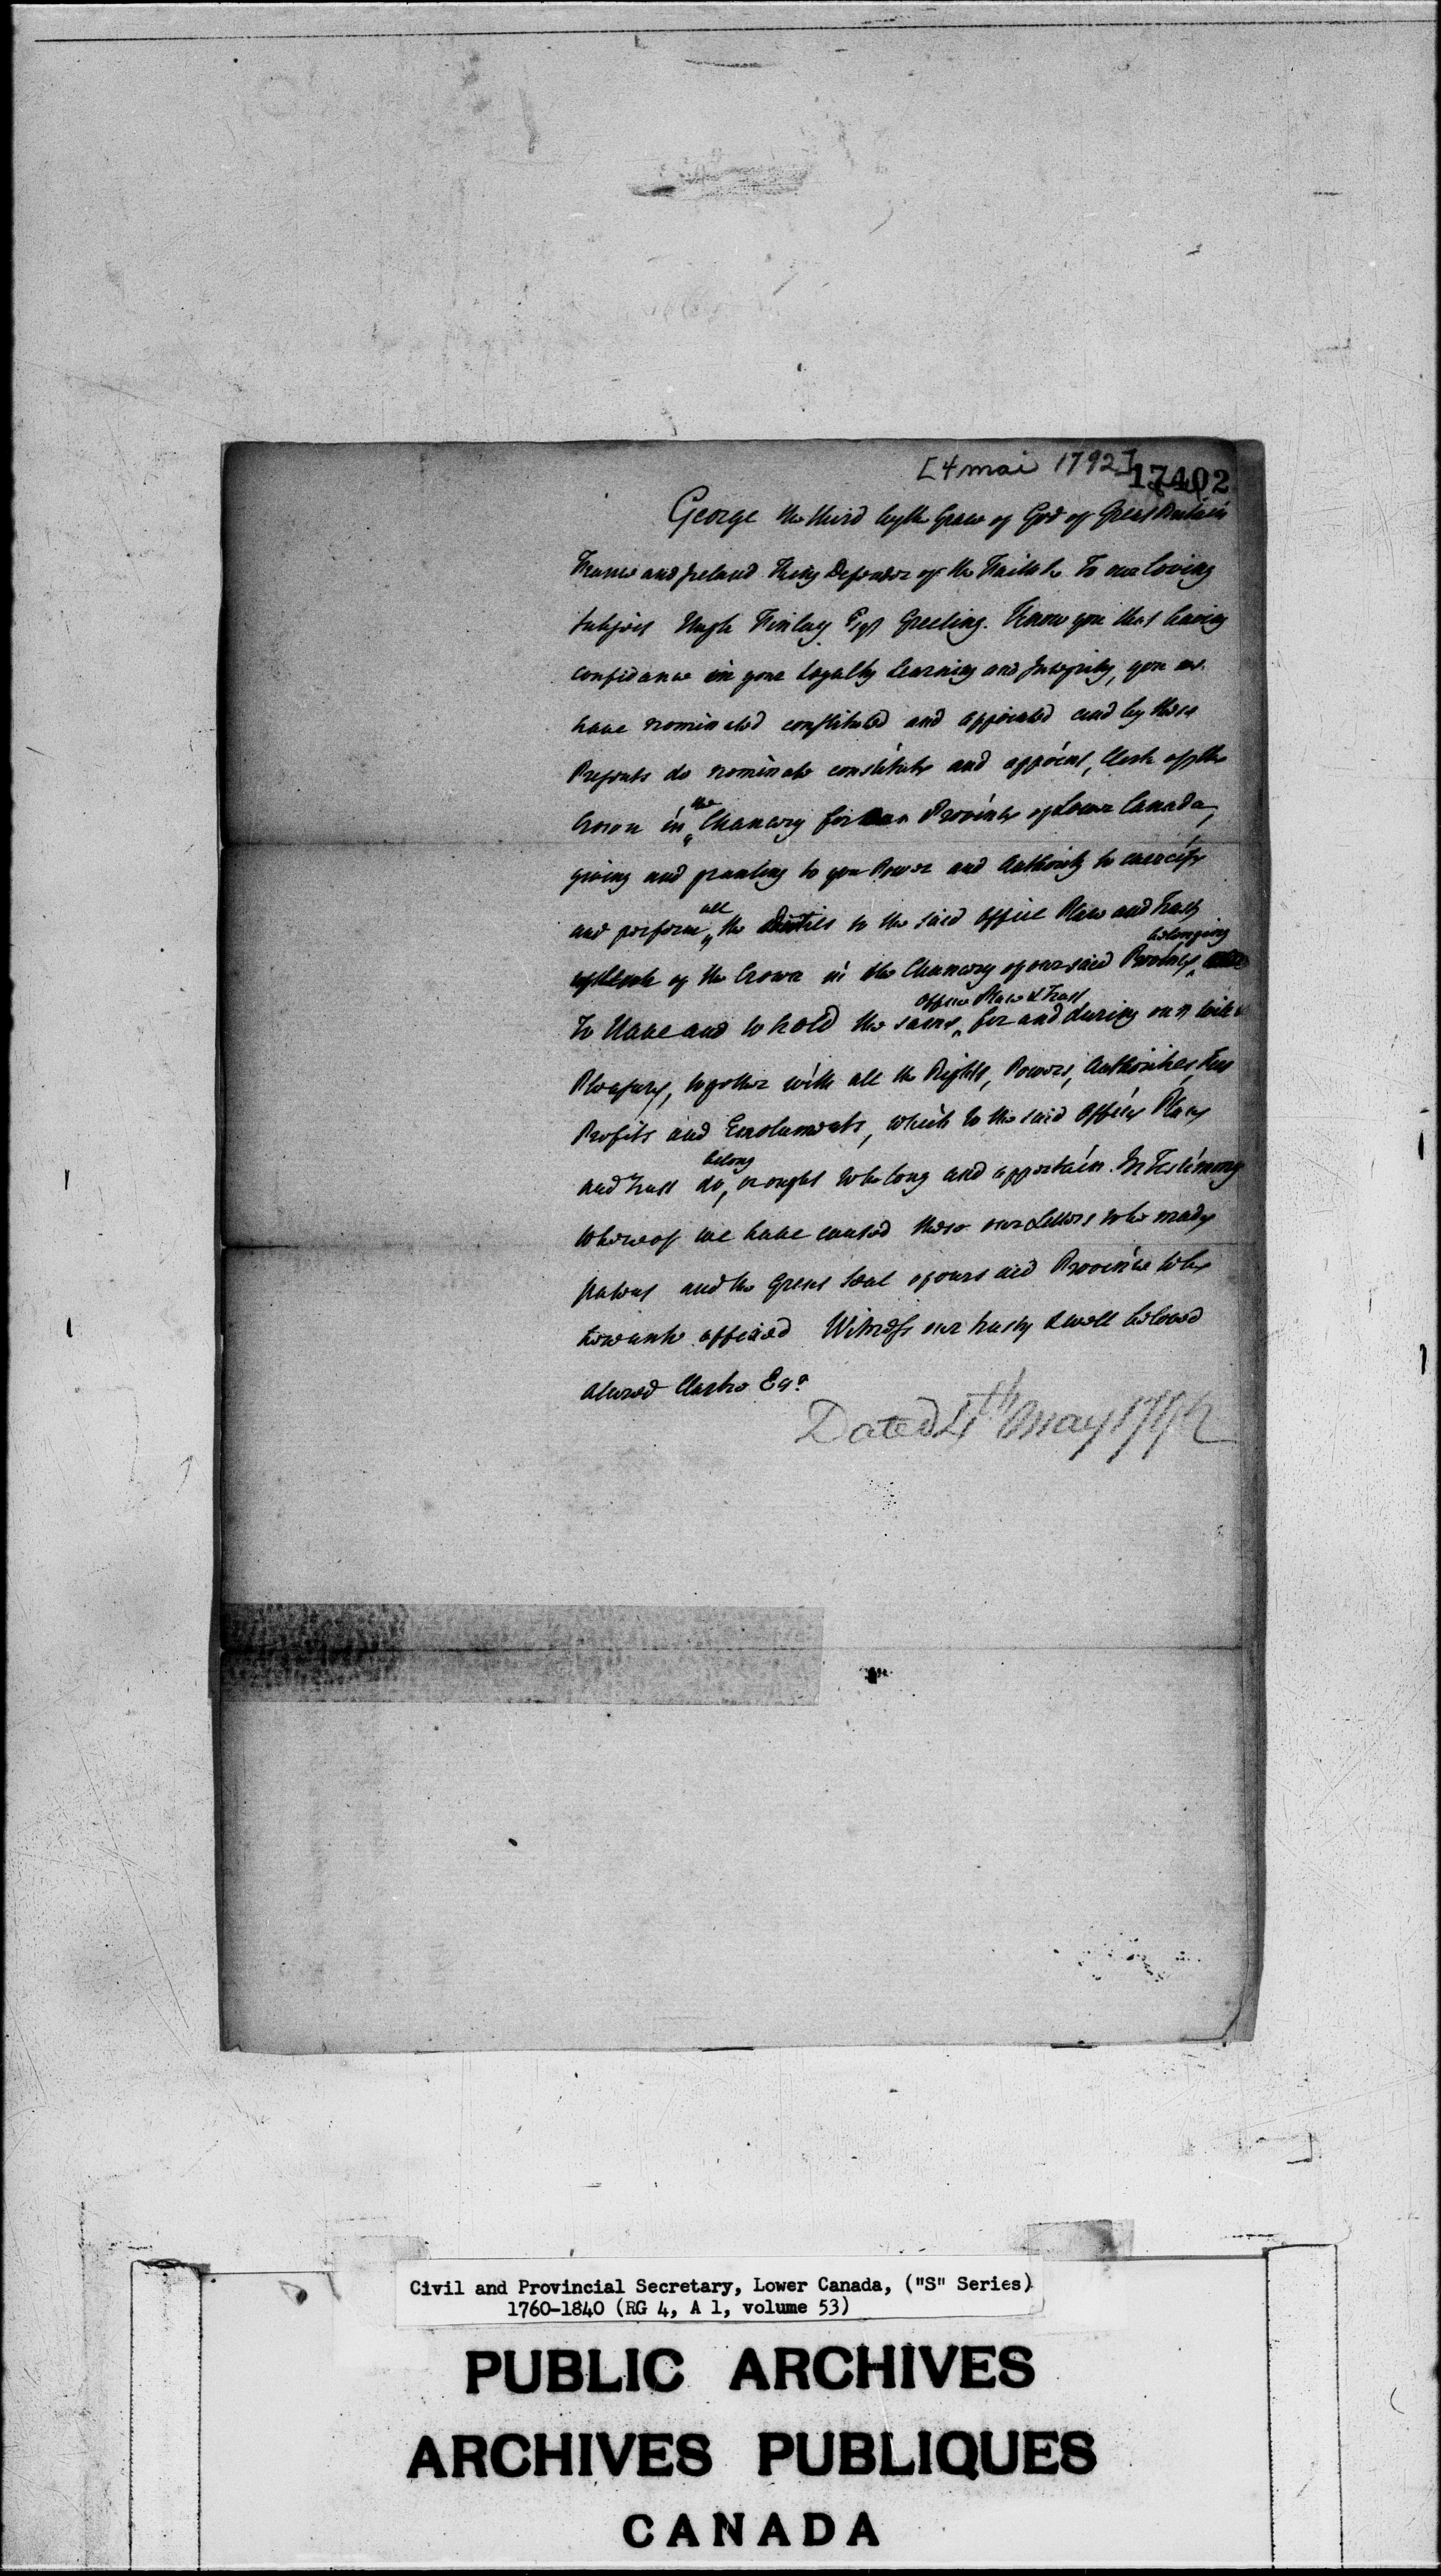 [4 mai 1792]
17402
George the third by the Grace of God of Great Britain
France and Ireland King Defender of the Faith &c To our loving
subject Hugh Finlay Esqr Greeting. Know you that having
confidence in your Loyalty Learning and Integrity, you we
have nominated constituted and appointed and by these
Presents do nominate constitute and appoint, Clerk of the
Crown in the Chancery for our Province of Lower Canada,
giving and granting to you Power and Authority to exercise
and perform all the Duties to the said Office Place and Trust
of Clerk of the Crown in the Chancery of our said Province belonging
To Have and to hold the same Office Place & Trust for and during our will &
Pleasure, together with all the Rights, Powers, Authorities, Fees
Profits and Emoluments, which to the said Office Place
and Trust do belong, or ought to belong and appertain. In Testimony
whereof we have caused these our Letters to be made
patent and the Great Seal of our said Province to be
hereunto affixed Witness our trusty & well beloved
Alured Clarke Esqr
Dated 4th May 1792
Civil and Provincial Secretary, Lower Canada, ("S" Series)
1760-1840 (RG 4, A 1, volume 53)
PUBLIC ARCHIVES
ARCHIVES PUBLIQUES
CANADA